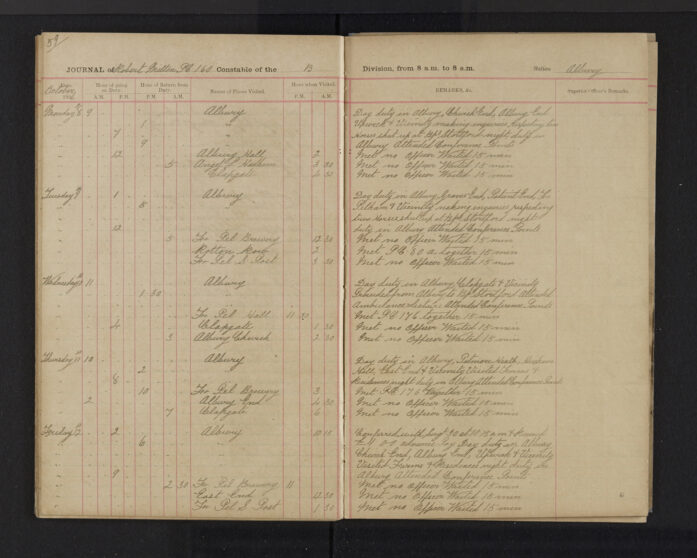 52
JOURNAL of Robert Britton PC 160 Constable of the B
Division, from 8 a.m. to 8 a.m. Station Albury
Date. Hour of going on Duty. Hour of Return from Duty. Names of Places Visited. Hour when Visited.
REMARKS, &c. Superior Officer's Remarks.
October A.M. P.M. P.M. A.M. P.M. A.M.
Monday 8 9 Albury
Day duty in Albury, Church End, Albury End
1 "
Upwick & Vicinity making inquiries respecting two
7 "
Horses shut up at Bp. Stortford, night duty in
9
Albury Attended Conference Points
12 Albury Hall 2
Met no Officer Waited 15 min
5 3 30
Met no Officer Waited 15 min
Clapgate 4 30
Met no Officer Waited 15 min
Tuesday 9 1 Albury
Day duty in Albury, Graves End, Patient End, Fx
8
Pelham & Vicinity making inquiries respecting
two Horses shut up at Bp. Stortford night
12
duty in Albury Attended Conference Points
5 Fx Pel Brewery 12 30
Met no Officer Waited 15 min
Rotten Row 2
Met PC 80 a together 15 min
Fx Pel S Post 3 30
Met no Officer Waited 15 min
Wednesday 11 Albury
Day duty in Albury, Clapgate & Vicinity
1 30 "
from Albury to Bp Stortford Attended
Ambulance Attended Conference Points
Fx Pel Hall 11 30
Met PC 176 together 15 min
4 Clapgate 1 30
Met no Officer Waited 15 min
3 Albury Church 2 30
Met no Officer Waited 15 min
Thursday 11 10 Albury
Day duty in Albury, Patmore Heath,
2
Hall, East End & Vicinity Visited Farms &
8
Residences night duty in Albury Attended Conference Points
10 Fx Pel Brewery 3
Met PC 176 together 15 min
2 Albury End 4 30
Met no Officer Waited 15 min
7 Clapgate 6
Met no Officer Waited 15 min
Friday 12 2 Albury 10 15
Conferred with Sergt 90 at 10.15 a m &
6
Day duty in Albury
Church End, Albury End, Upwick & Vicinity
Visited Farms & Residences night duty in
9
Albury Attended Conference Points
2 30 Fx Pel Brewery 11
Met no Officer Waited 15 min
East End 12 30
Met no Officer Waited 15 min
Fx Pel S Post 1 30
Met no Officer Waited 15 min